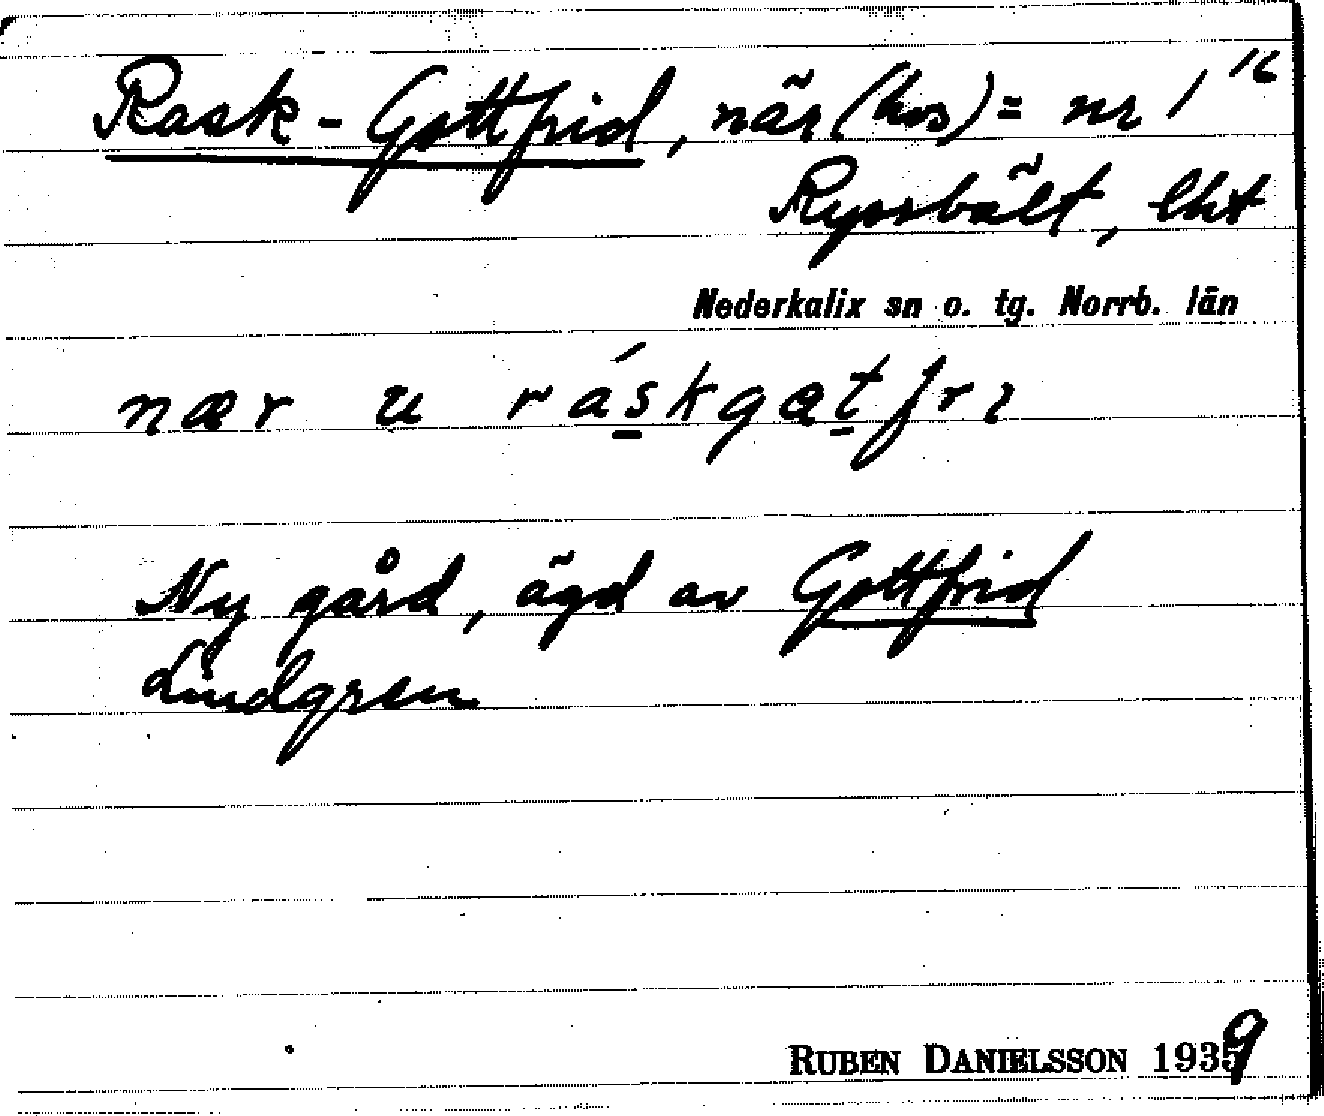 Rask-Gottfrid, när (hos) = nr 1¹⁶
Ryssbält, lht
Nederkalix sn o. tg. Norrb. län
nær u ráskgɑtfrı
Ny gård, ägd av Gottfrid
Lindgren
RUBEN DANIELSSON 1939